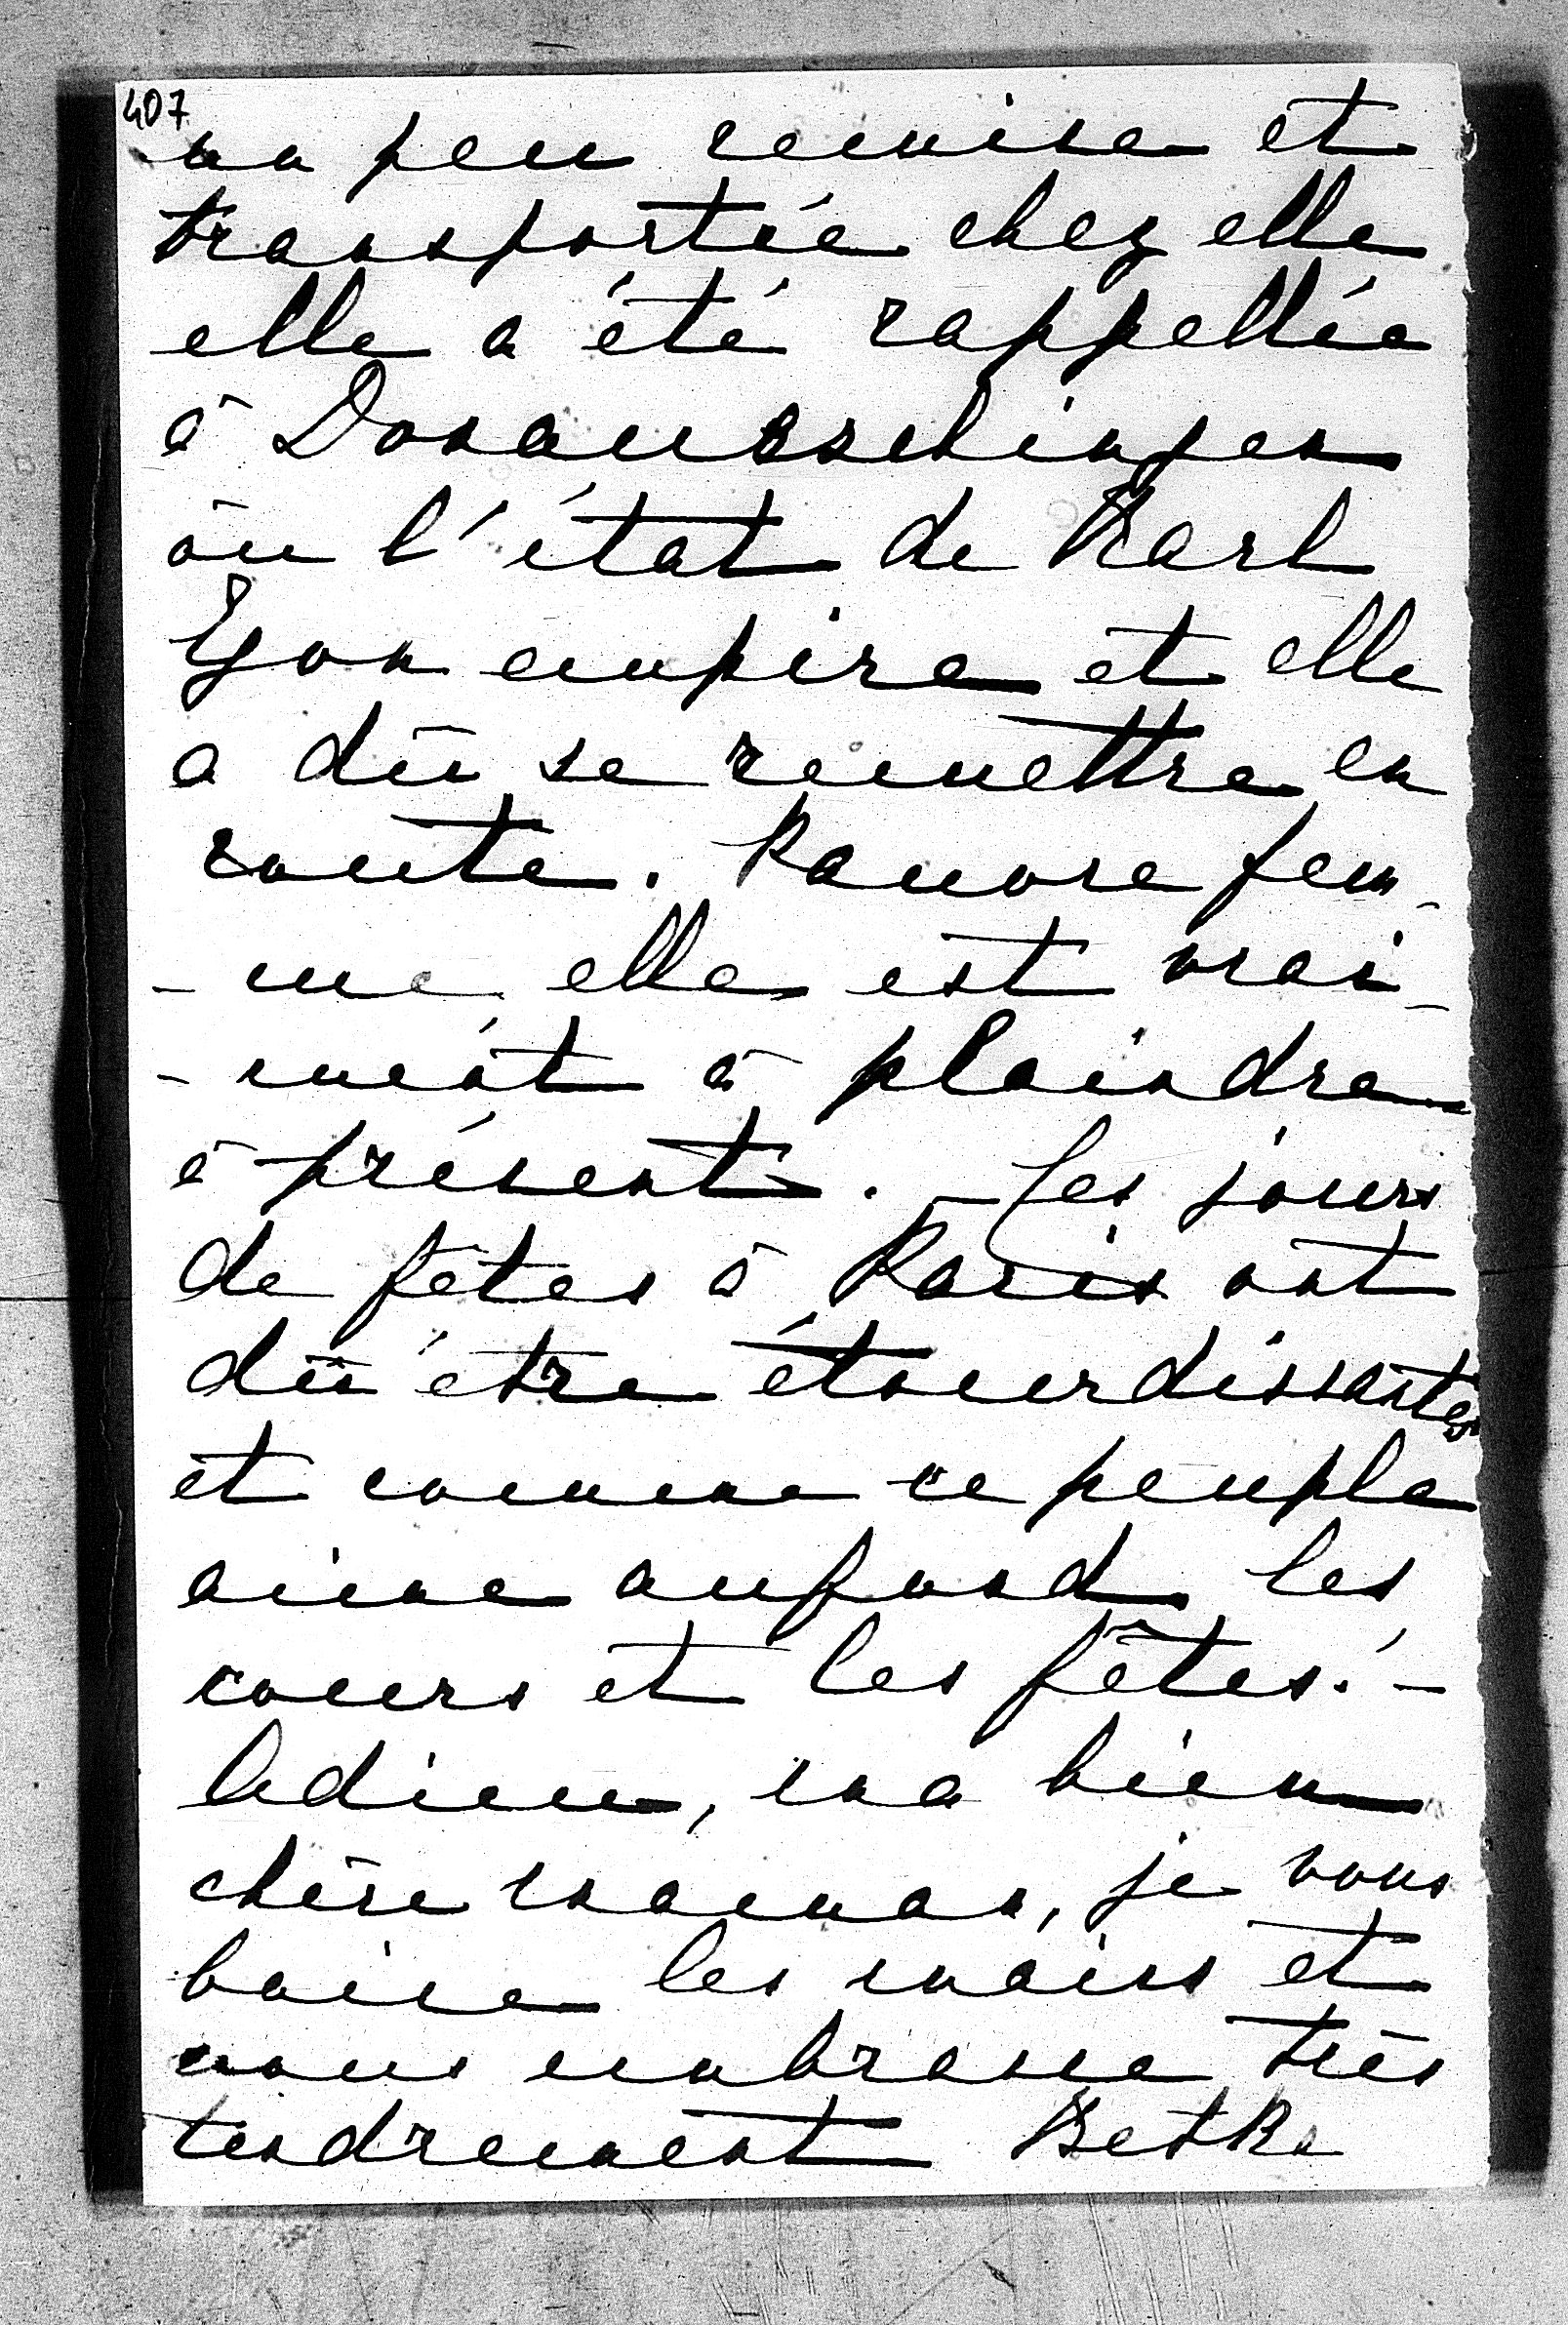 407
un peu remise et
transportée chez elle
elle a été rappellée
à Donaueschingen
où l'état de Karl
Egon empire et elle
a dû se remettre en
route. Pauvre fem-
-me elle est vrai-
-ment à plaindre
à présent. – Les jours
de fêtes à Paris ont
dû être étourdissantes
et comme ce peuple
aime aufond les
cours et les fêtes! –
Adieu, ma bien
chère maman, je vous
baise les mains et
vous embrasse très
tendrement Betka